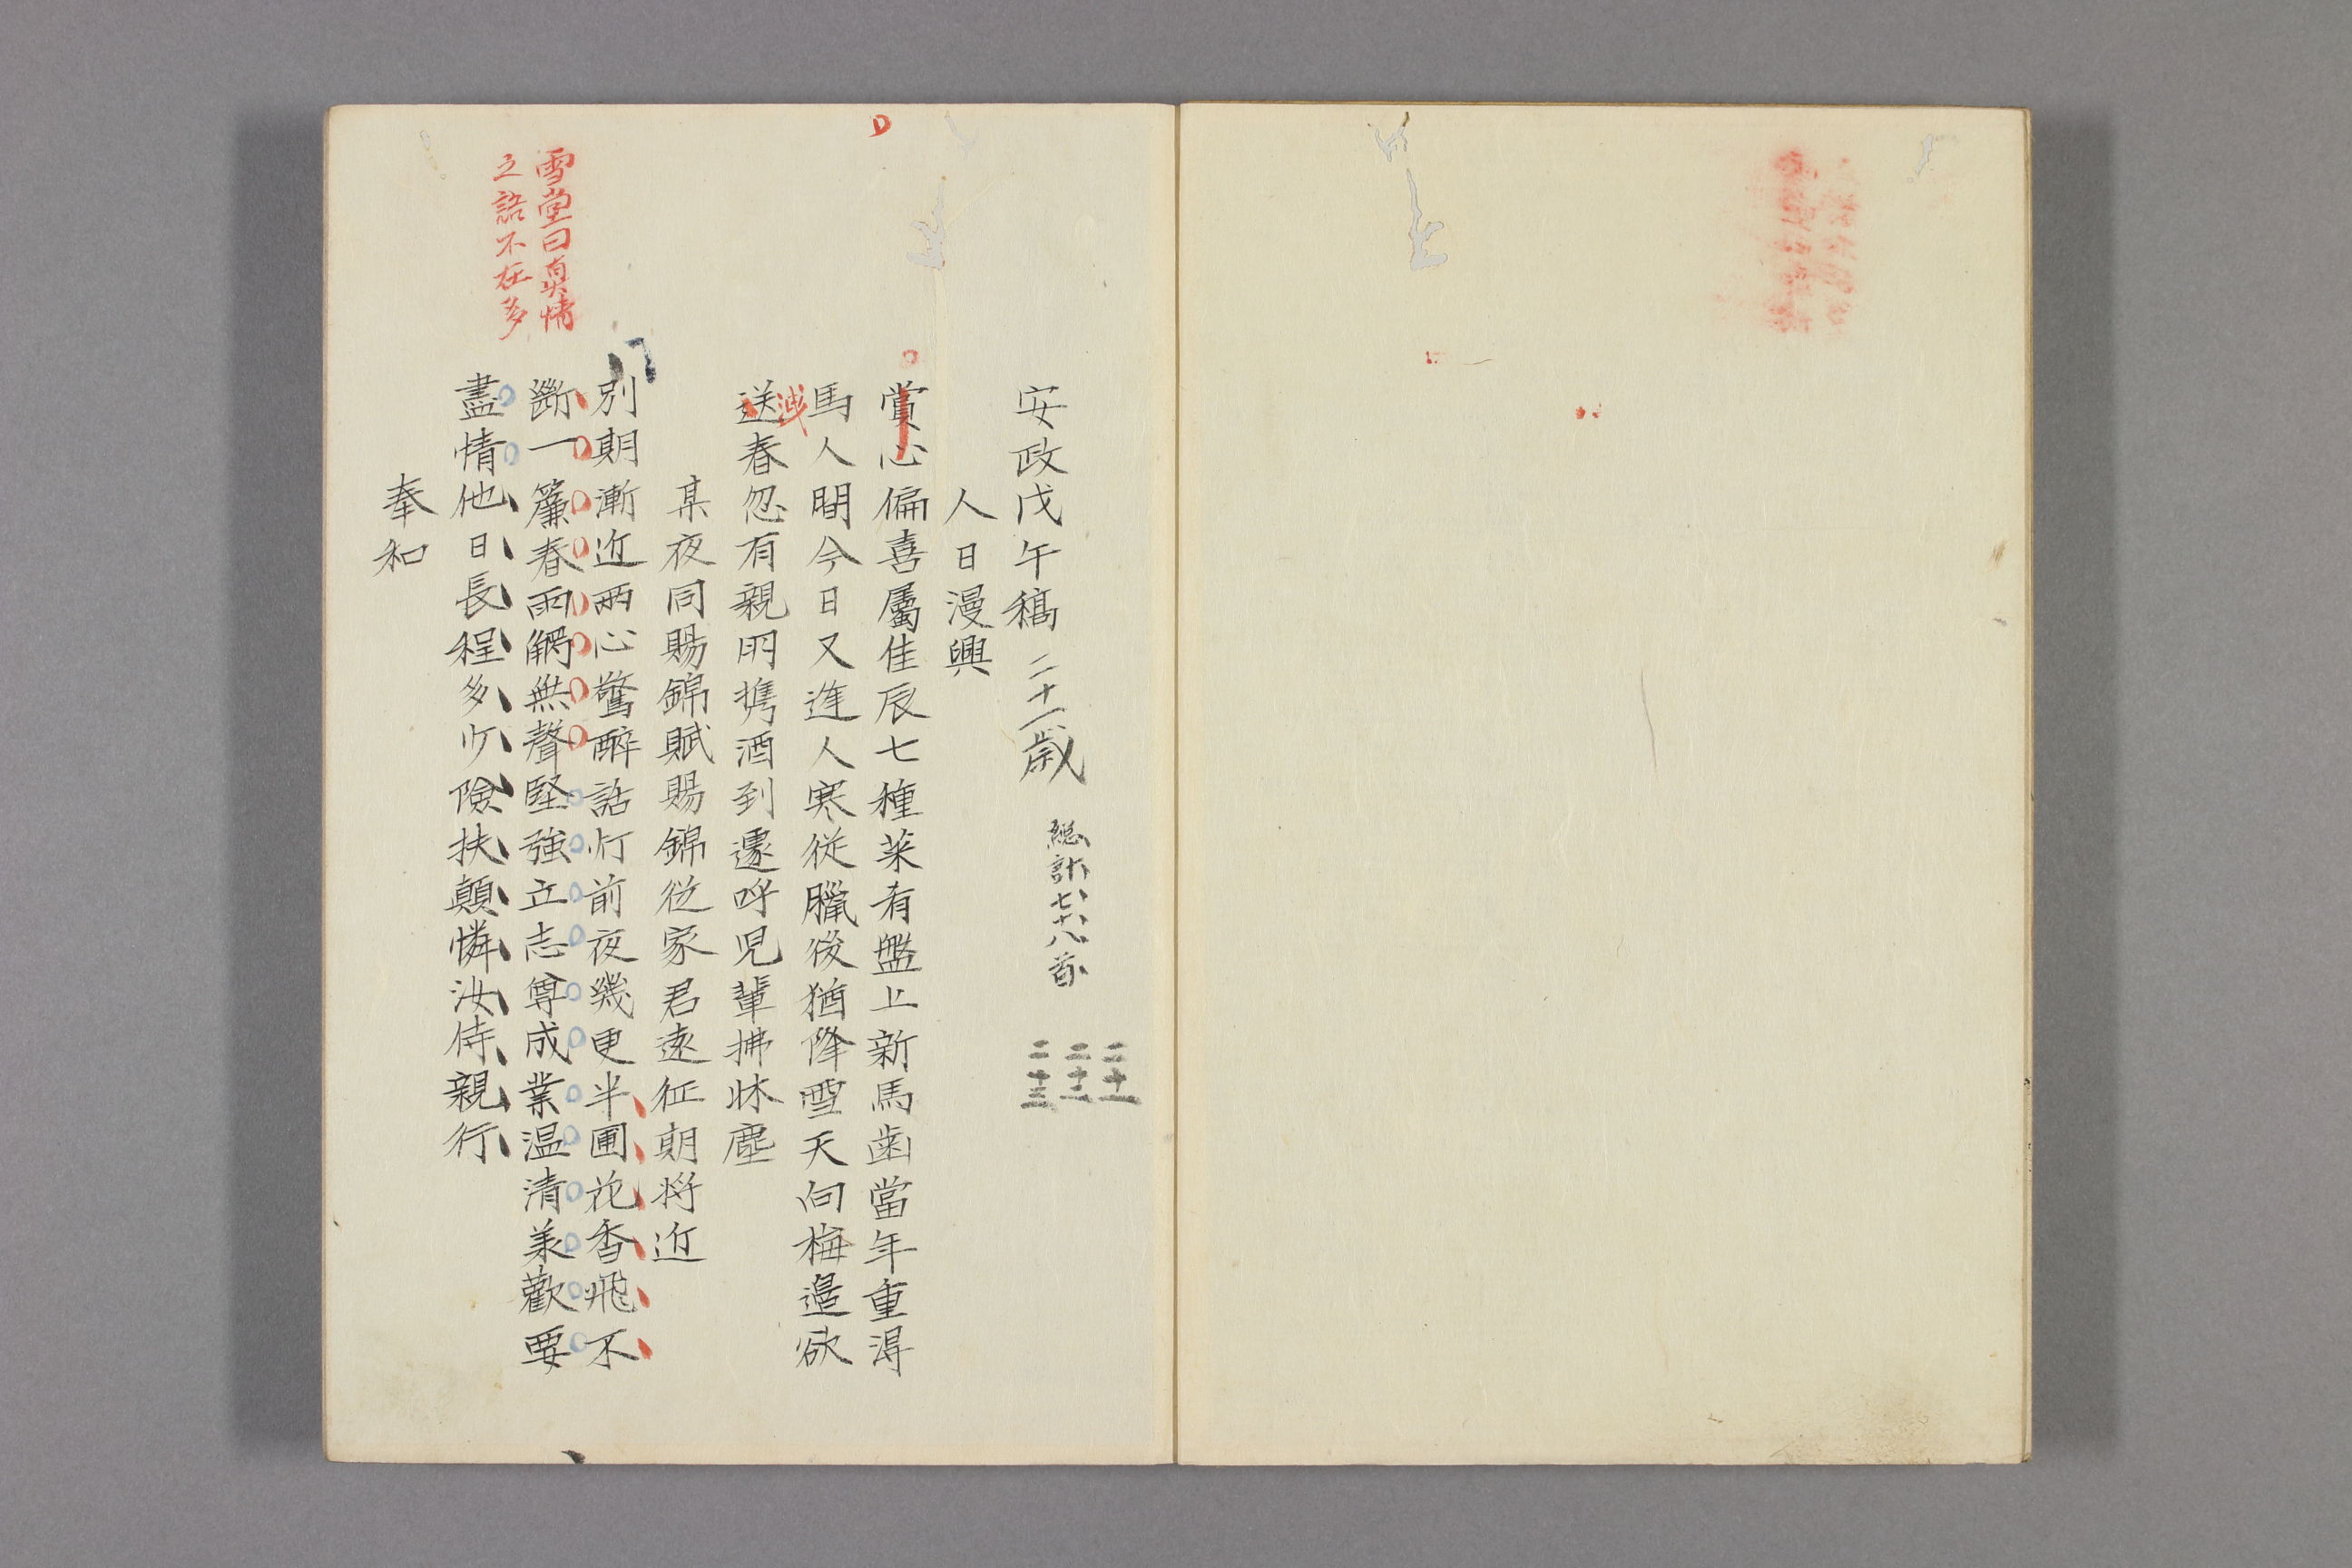 安政戊午稿 二十一歳 総計七十八首
二十一
二十二
二十三
人日漫興
賞心偏喜屬佳辰七種菜有盤上新馬歯當年重淂
馬人間今日又逢人寒従臘後猶降雪天向梅邉欲
送春忽有親朋携酒到遽呼児輩拂牀塵
某夜同賜錦賦賜錦従家君遠征期将近
別期漸近両心驚酔話灯前夜幾更半圃花香飛不
斷一簾春雨觸無聲堅強立志尊成業温清美歡要
盡情他日長程多少險扶顛憐汝侍親行
奉和
雪堂曰真情
之語不在多